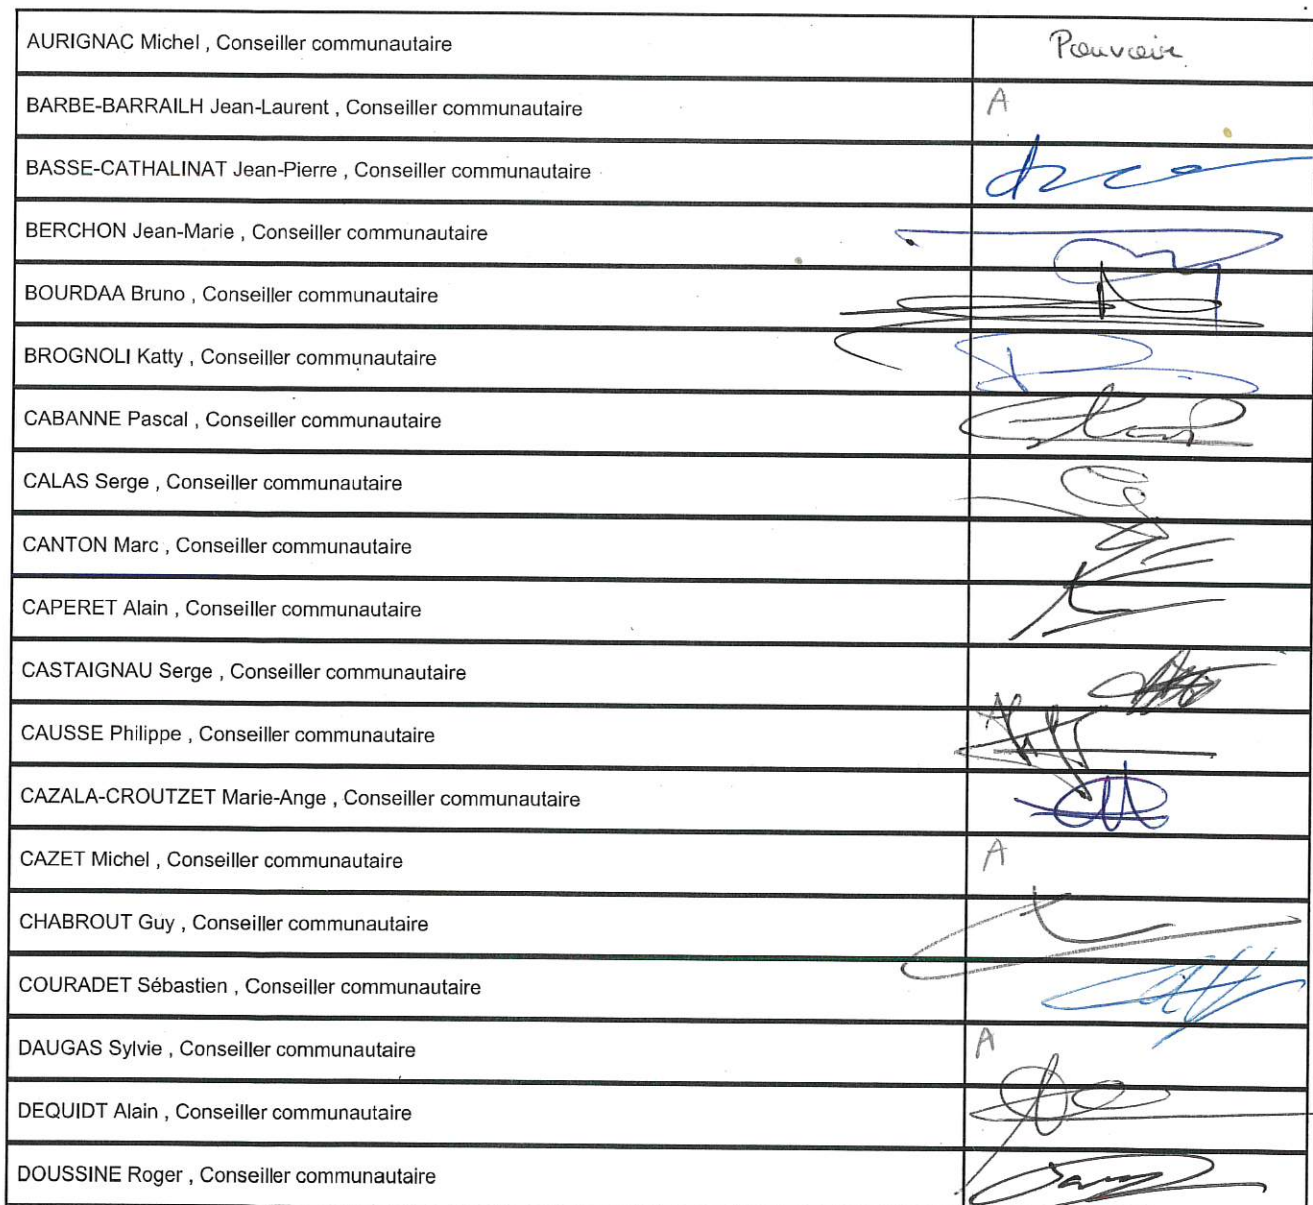 AURIGNAC Michel , Conseiller communautaire Pouvoir
BARBE-BARRAILH Jean-Laurent , Conseiller communautaire A
BASSE-CATHALINAT Jean-Pierre , Conseiller communautaire
BERCHON Jean-Marie , Conseiller communautaire
BOURDAA Bruno , Conseiller communautaire
BROGNOLI Katty , Conseiller communautaire
CABANNE Pascal , Conseiller communautaire
CALAS Serge , Conseiller communautaire
CANTON Marc , Conseiller communautaire
CAPERET Alain , Conseiller communautaire
CASTAIGNAU Serge , Conseiller communautaire
CAUSSE Philippe , Conseiller communautaire A
CAZALA-CROUTZET Marie-Ange , Conseiller communautaire
CAZET Michel , Conseiller communautaire A
CHABROUT Guy , Conseiller communautaire
COURADET Sébastien , Conseiller communautaire
DAUGAS Sylvie , Conseiller communautaire A
DEQUIDT Alain , Conseiller communautaire
DOUSSINE Roger , Conseiller communautaire